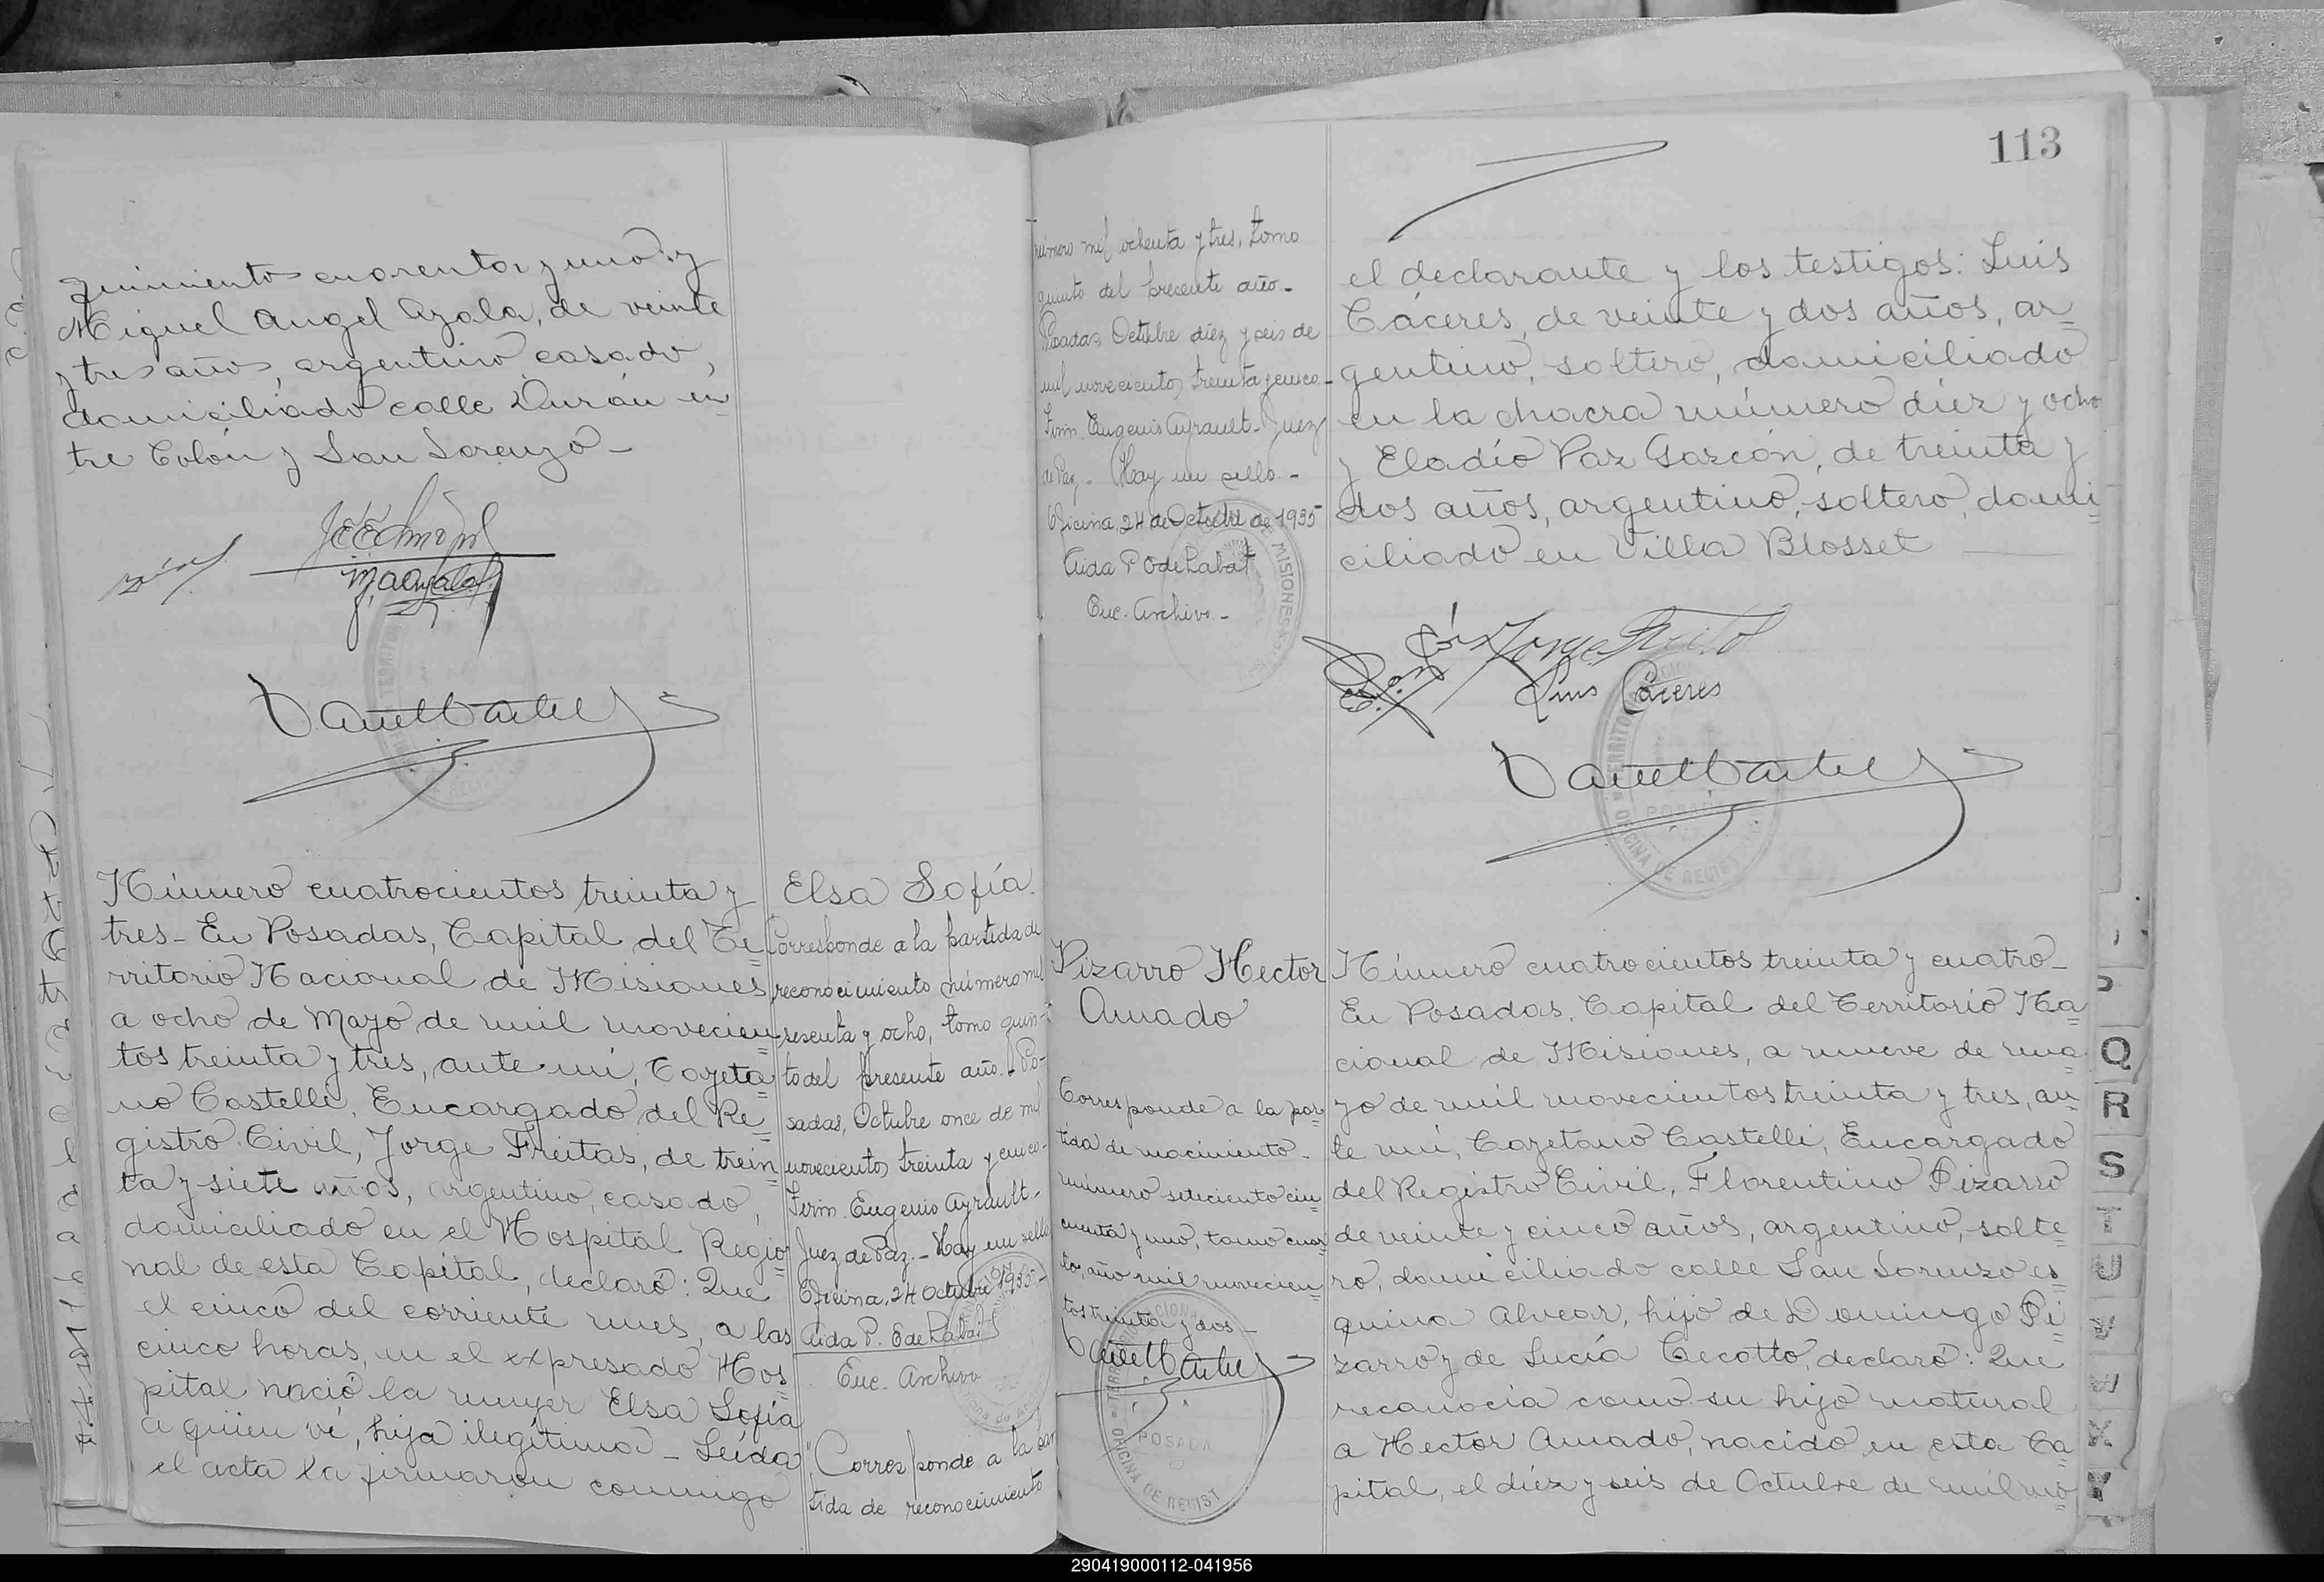 quinientos cuarenta y uno y
Miguel Angel Ayala, de veinte
y tres años, argentino, casado,
domiciliado calle Durán en
tre Colón y San Lorenzo -
Número cuatrocientos treinta y
tres - En Posadas, Capital del Te=
rritorio Nacional de Misiones
a ocho de Mayo de mil novecien=
tos treinta y tres, ante mi, Cayeta=
no Castelli, Encargado del Re=
gistro Civil, Jorge Freitas, de trein=
ta y siete años, argentino, casado,
domiciliado en el Hospital Regio=
nal de esta Capital, declaró: Que
el cinco del corriente mes, a las
cinco horas, en el expresado Hos=
pital nació la mujer Elsa Sofía
a quien vé, hija ilegítima - Leída
el acta la firmaron conmigo
Elsa Sofía
Corresponde a la partida de
reconocimiento número mil
sesenta y ocho, tomo quin-
to del presente año. - Po-
sadas, Octubre once de mil
novecientos treinta y cinco-
Firm. Eugenio Ayrault-
Juez de Paz. - Hay un sello
Oficina, 24 Octubre 1935.-
Aida P. O de Labat
Enc. Archivo
"Corresponde a la par
tida de reconocimiento
número mil ochenta y tres, tomo
quinto del presente año.-
Posadas, Octubre diez y seis de
mil novecientos treinta y cinco.-
Firm. Eugenio Ayrault- Juez
de Paz. - Hay un sello.-
Oficina, 24 de Octubre de 1935
Aida P O de Labat
Enc. Archivo.-
113
el declarante y los testigos: Luis
Cáceres, de veinte y dos años, ar=
gentino, soltero, domiciliado
en la chacra número diez y ocho
y Eladio Paz Garzón, de treinta y
dos años, argentino, soltero, domi=
ciliado en Villa Blosset
Luis Cáceres
Pizarro Hector
Amado
Corresponde a la par
tida de nacimiento
número setecientos cin
cuenta y uno, tomo cuar
to, año mil novecien
tos treinta y dos -
Número cuatrocientos treinta y cuatro -
En Posadas, Capital del Territorio Na=
cional de Misiones, a nueve de ma=
yo de mil novecientos treinta y tres, an=
te mi, Cayetano Castelli, Encargado
del Registro Civil, Florentino Pizarro
de veinte y cinco años, argentino, solte=
ro, domiciliado calle San Lorenzo es=
quina Alvear, hijo de Domingo Pi=
zarro y de Lucía Cecotto, declaró: Que
reconocía como su hijo natural
a Hector Amado, nacido en esta Ca=
pital, el diéz y seis de Octubre de mil no=
Q
R
S
T
U
V
W
X
Y
290419000112-041956